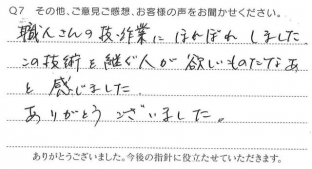 Q7 その他、ご意見ご感想、お客様の声をお聞かせください。
職人さんの技・作業に ほれぼれ しました
この技術を継ぐ人が 欲しいものだなあ
と 感じました
ありがとう ございました。
ありがとうございました。今後の指針に役立たせていただきます。